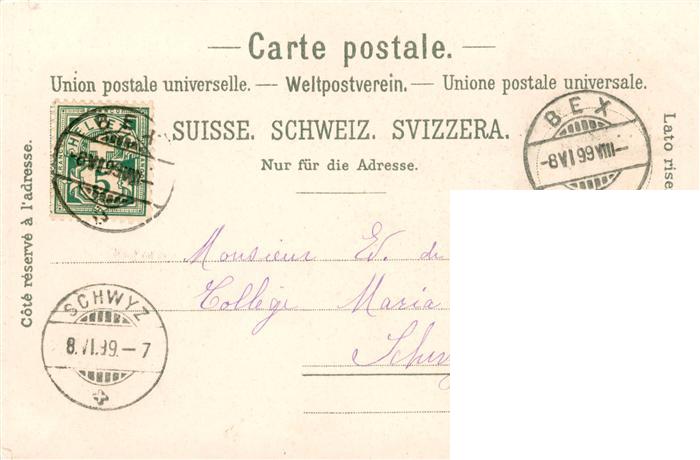 — Carte postale. —
Union postale universelle. — Weltpostverein. — Unione postale universale.
SUISSE. SCHWEIZ. SVIZZERA.
Nur für die Adresse.
Côté réservé à l'adresse.
Lato rise
HELVETIA
5
BEX
BEX
Monsieur Ed. de
Collège Maria
Schwy
SCHWYZ
8.VI.99.–7